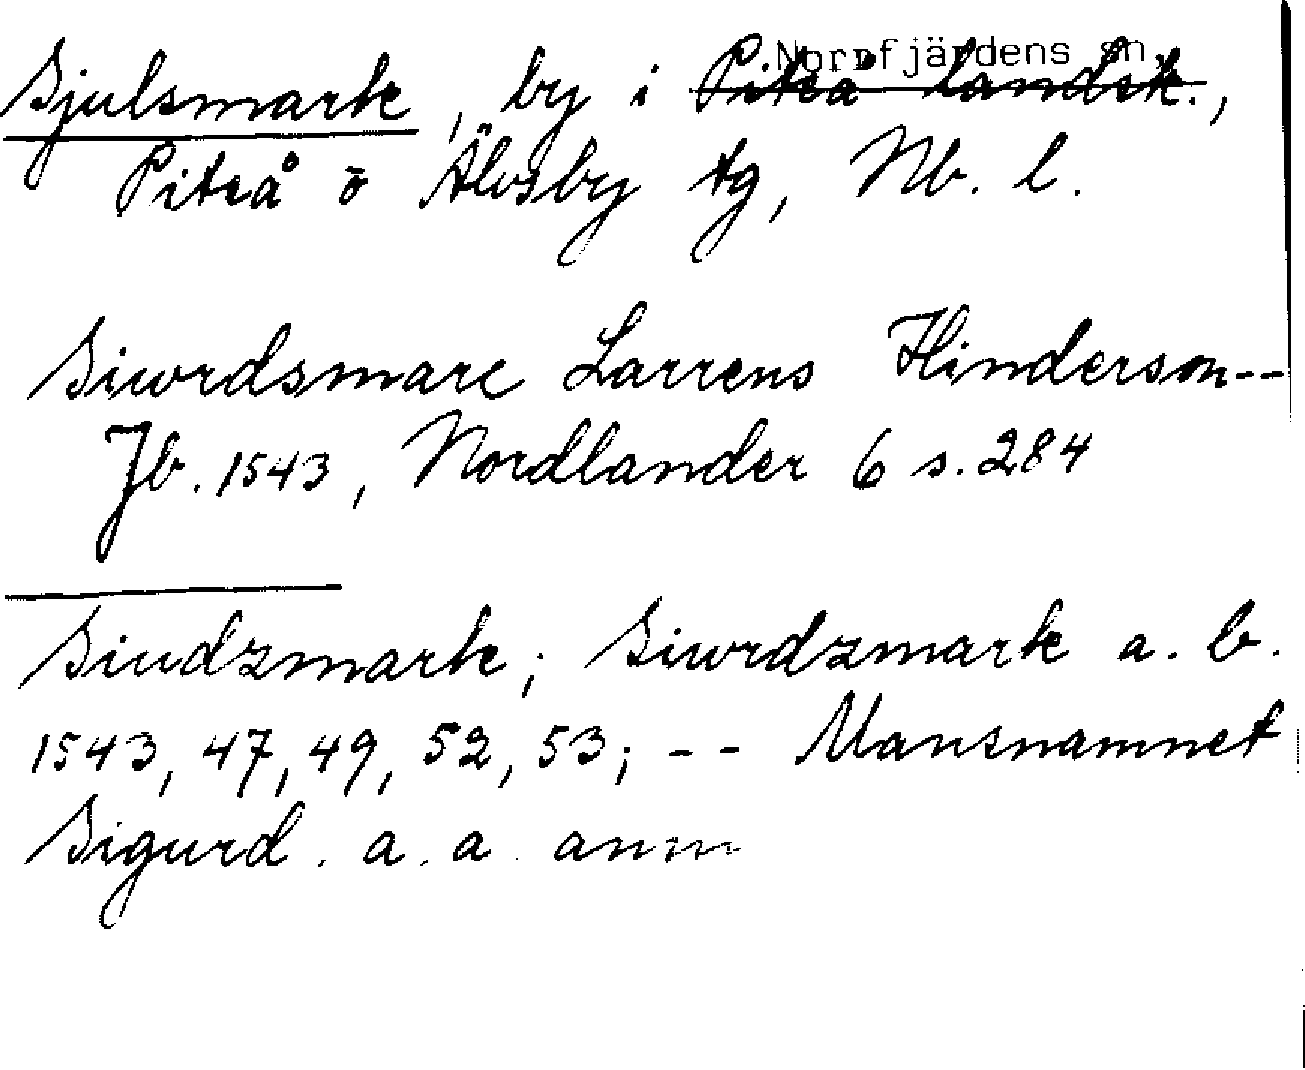 Norrfjärdens sn,
Sjulsmark, by i Piteå landsk.,
Piteå o Älvsby tg, Nb. l.
Siwrdsmarc Larrens Hinderson--
Jb. 1543, Nordlander 6 s. 284
Siudzmark; Siwrdzmark a. b.
1543, 47, 49, 52, 53; -- Mansnamnet
Sigurd. a. a anm